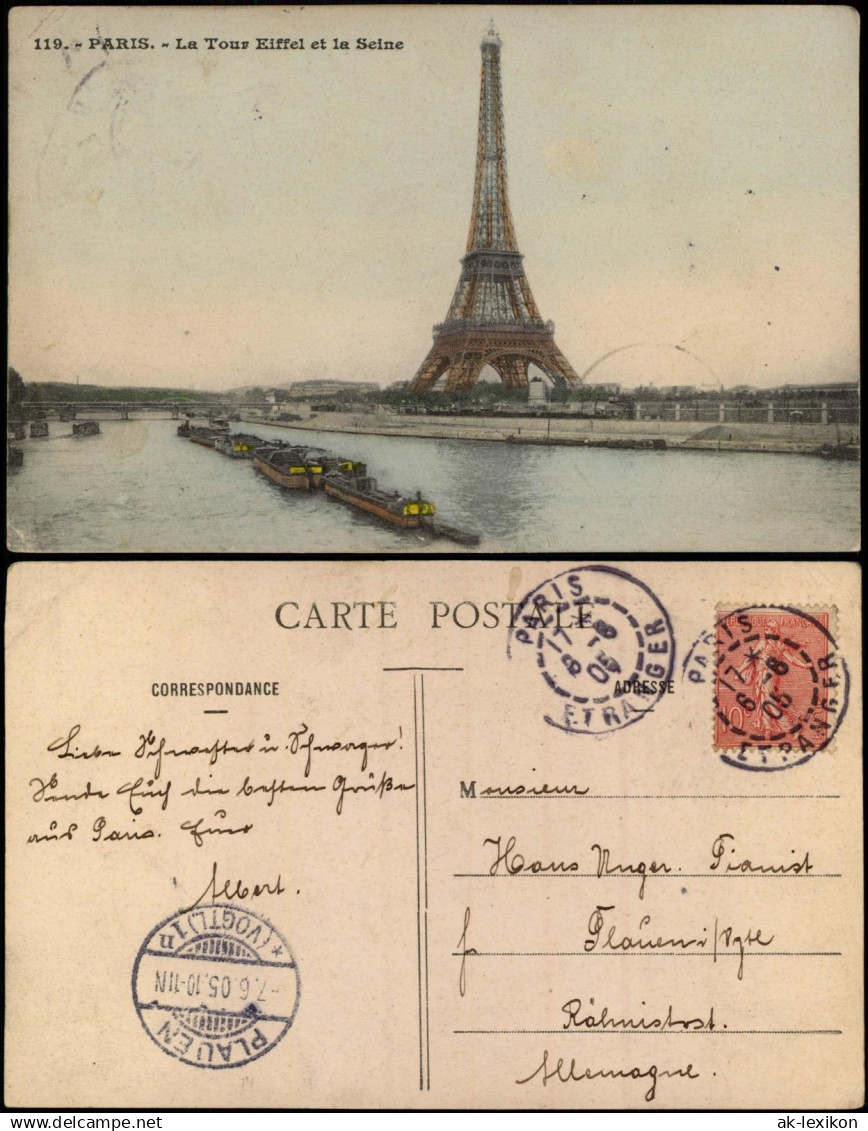 119. - PARIS. - La Tour Eiffel et la Seine
CARTE POSTALE
CORRESPONDANCE
ADRESSE
PARIS
17 * 8
6 -6
05
ETRANGER
PARIS
17 * 8
6 -6
05
ETRANGER
10
Liebe Schwester u. Schwager!
Sende Euch die besten Grüße
aus Paris. Euer
Albert.
Monsieur
Hans Unger. Pianist
Plauen i/Vgtl
Rähnisstr.
Allemagne.
PLAUEN
-7.6 05.10-11N
* (VOGTL.) 1n
ak-lexikon